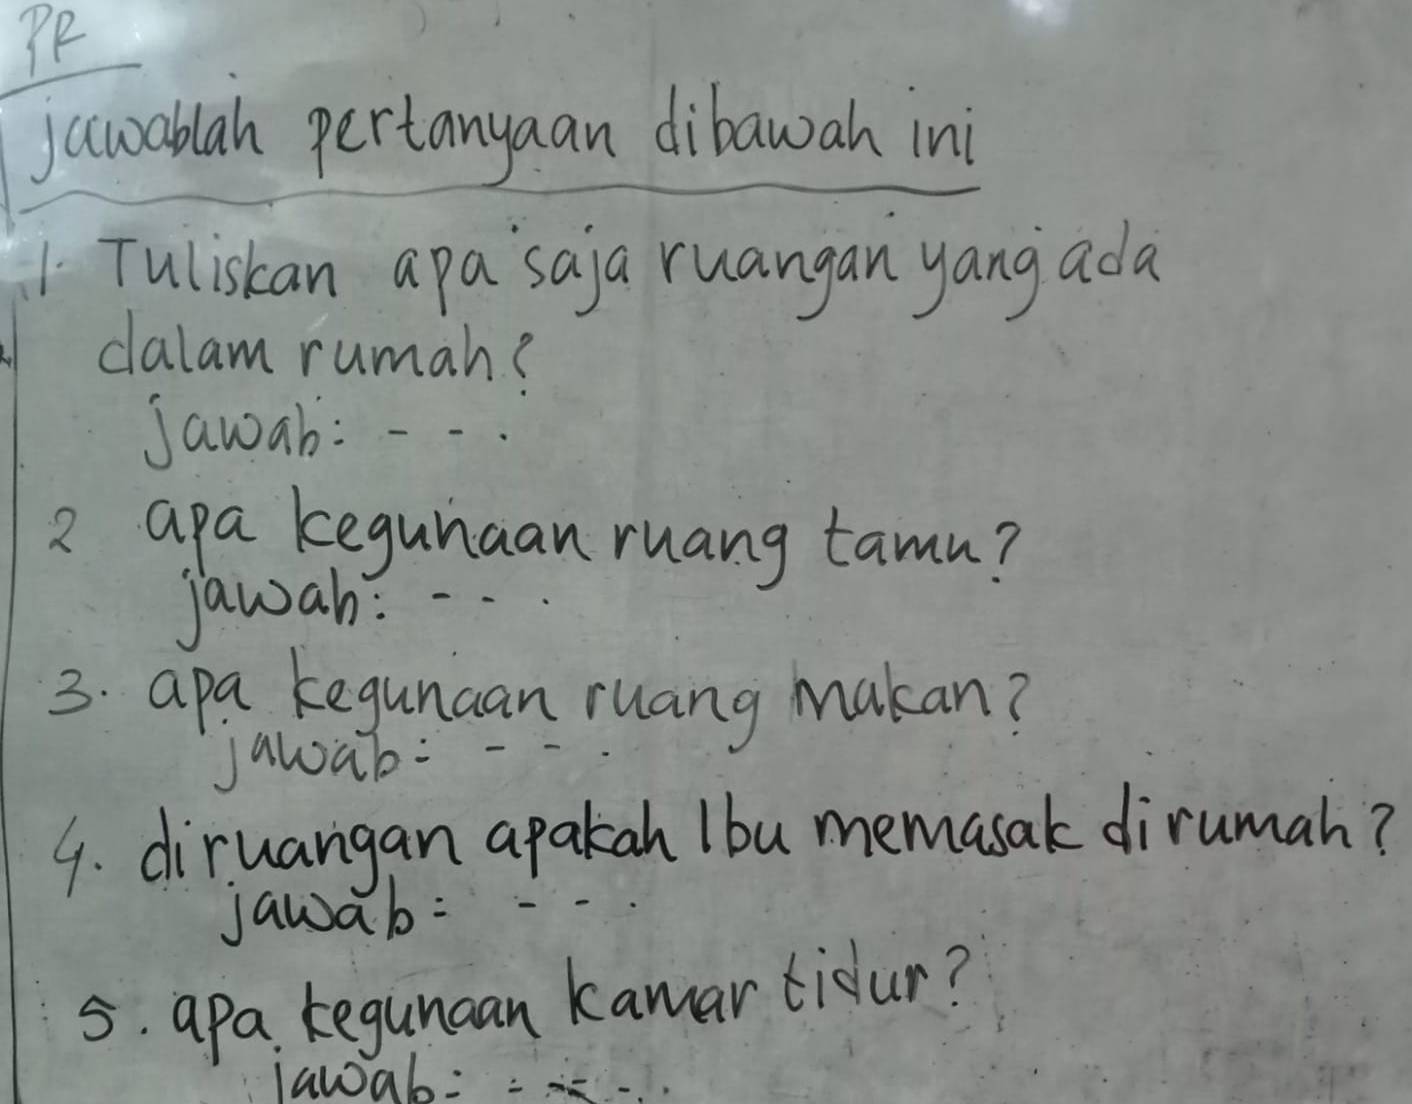 PR
jawablah pertanyaan dibawah ini
1. Tuliskan apa saja ruangan yang ada
dalam rumah?
Jawab: - - .
2 apa kegunaan ruang tamu?
jawab: - - .
3. apa kegunaan ruang makan?
jawab: - - .
4. diruangan apakah Ibu memasak dirumah?
jawab: - - .
5. apa kegunaan kamar tidur?
jawab: - - - .